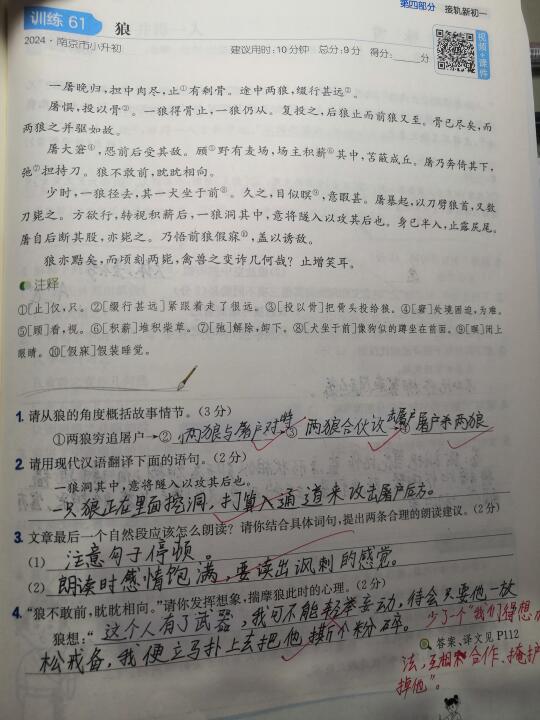 第四部分 接轨新初一
训练 61
狼
2024·南京市小升初
建议用时:10分钟 总分:9分 得分:____分
视频+课件
一屠晚归,担中肉尽,止①有剩骨。途中两狼,缀行甚远②。
屠惧,投以骨③。一狼得骨止,一狼仍从。复投之,后狼止而前狼又至。骨已尽矣,而
两狼之并驱如故。
屠大窘④,恐前后受其敌。顾⑤野有麦场,场主积薪⑥其中,苫蔽成丘。屠乃奔倚其下,
弛⑦担持刀。狼不敢前,眈眈相向。
少时,一狼径去,其一犬坐于前⑧。久之,目似瞑⑨,意暇甚。屠暴起,以刀劈狼首,又数
刀毙之。方欲行,转视积薪后,一狼洞其中,意将隧入以攻其后也。身已半入,止露尻尾。
屠自后断其股,亦毙之。乃悟前狼假寐⑩,盖以诱敌。
狼亦黠矣,而顷刻两毙,禽兽之变诈几何哉?止增笑耳。
注释
①[止]仅,只。②[缀行甚远]紧跟着走了很远。③[投以骨]把骨头投给狼。④[窘]处境困迫,为难。
⑤[顾]看,视。⑥[积薪]堆积柴草。⑦[弛]解除,卸下。⑧[犬坐于前]像狗似的蹲坐在前面。⑨[瞑]闭上
眼睛。⑩[假寐]假装睡觉。
1. 请从狼的角度概括故事情节。(3分)
①两狼穷追屠户→② 两狼与屠户对峙 ③ 两狼合伙攻击屠户 屠户杀两狼
2. 请用现代汉语翻译下面的语句。(2分)
一狼洞其中,意将隧入以攻其后也。
一只狼正在里面挖洞,打算入通道来攻击屠户后方。
3. 文章最后一个自然段应该怎么朗读?请你结合具体词句,提出两条合理的朗读建议。(2分)
(1) 注意句子停顿。
(2) 朗读时感情饱满,要读出讽刺的感觉。
4. “狼不敢前,眈眈相向。”请你发挥想象,揣摩狼此时的心理。(2分)
狼想:“这个人有了武器,我可不能轻举妄动,待会只要他一放
松戒备,我便立马扑上去把他撕个粉碎。 少了一个“我们得想办
答案、译文见 P112
法,互相合作、掩护
掉他”。